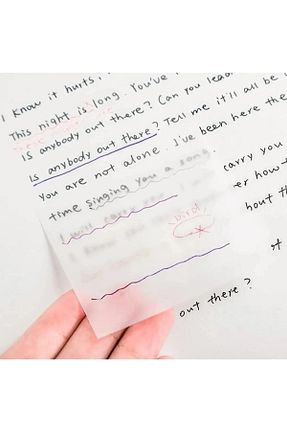 I know it hurts,
This night is long. You've
Is anybody out there? Can you lead
Is anybody out there? Tell me it'll all be
You are not alone. I've been here the
time singing you a song
I will carry you carry you
bird er how
hout th
of
out there?